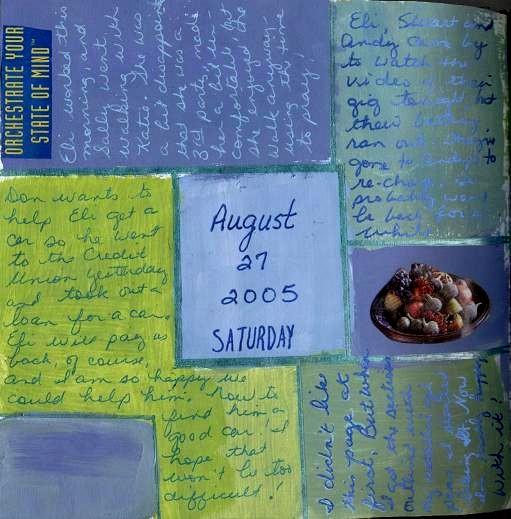 ORCHESTRATE YOUR
STATE OF MIND™
Eli worked this
morning and
Sally went
walking with
Katie. She was
a bit disappointed
that she was a
3rd party, made
her a bit un-
comfortable but
she enjoyed the
walk anyway,
using the time
to pray.
Eli, Stuart and
Andy came by
to watch the
video of their
gig tonight but
their battery
ran out. They've
gone to Andy's to
re-charge it
probably won't
be back for a
while.
Don wants to
help Eli get a
car so he went
to the Credit
Union yesterday
and took out a
loan for a car.
Eli will pay us
back, of course,
and I am so happy we
could help him. Now to
find him a
good car! I
hope that
won't be too
difficult!
August
27
2005
SATURDAY
I didn't like
this page at
first. But when
I got the sections
outlined with
my
it started
looking
I'm really happy
with it!